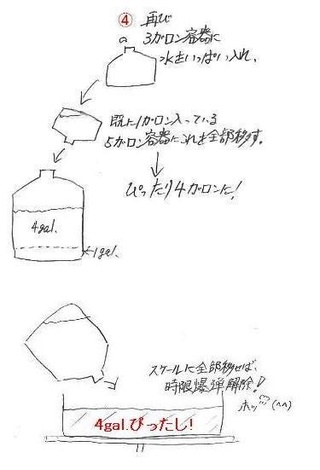 ④ 再び
3ガロン容器に
水をいっぱい入れ、
既に1ガロン入っている
5ガロン容器にこれを全部移す。
ぴったり4ガロンに!
4gal.
1gal.
スケールに全部移せば、
時限爆弾解除!
ホッ (^^)
4gal.ぴったし!